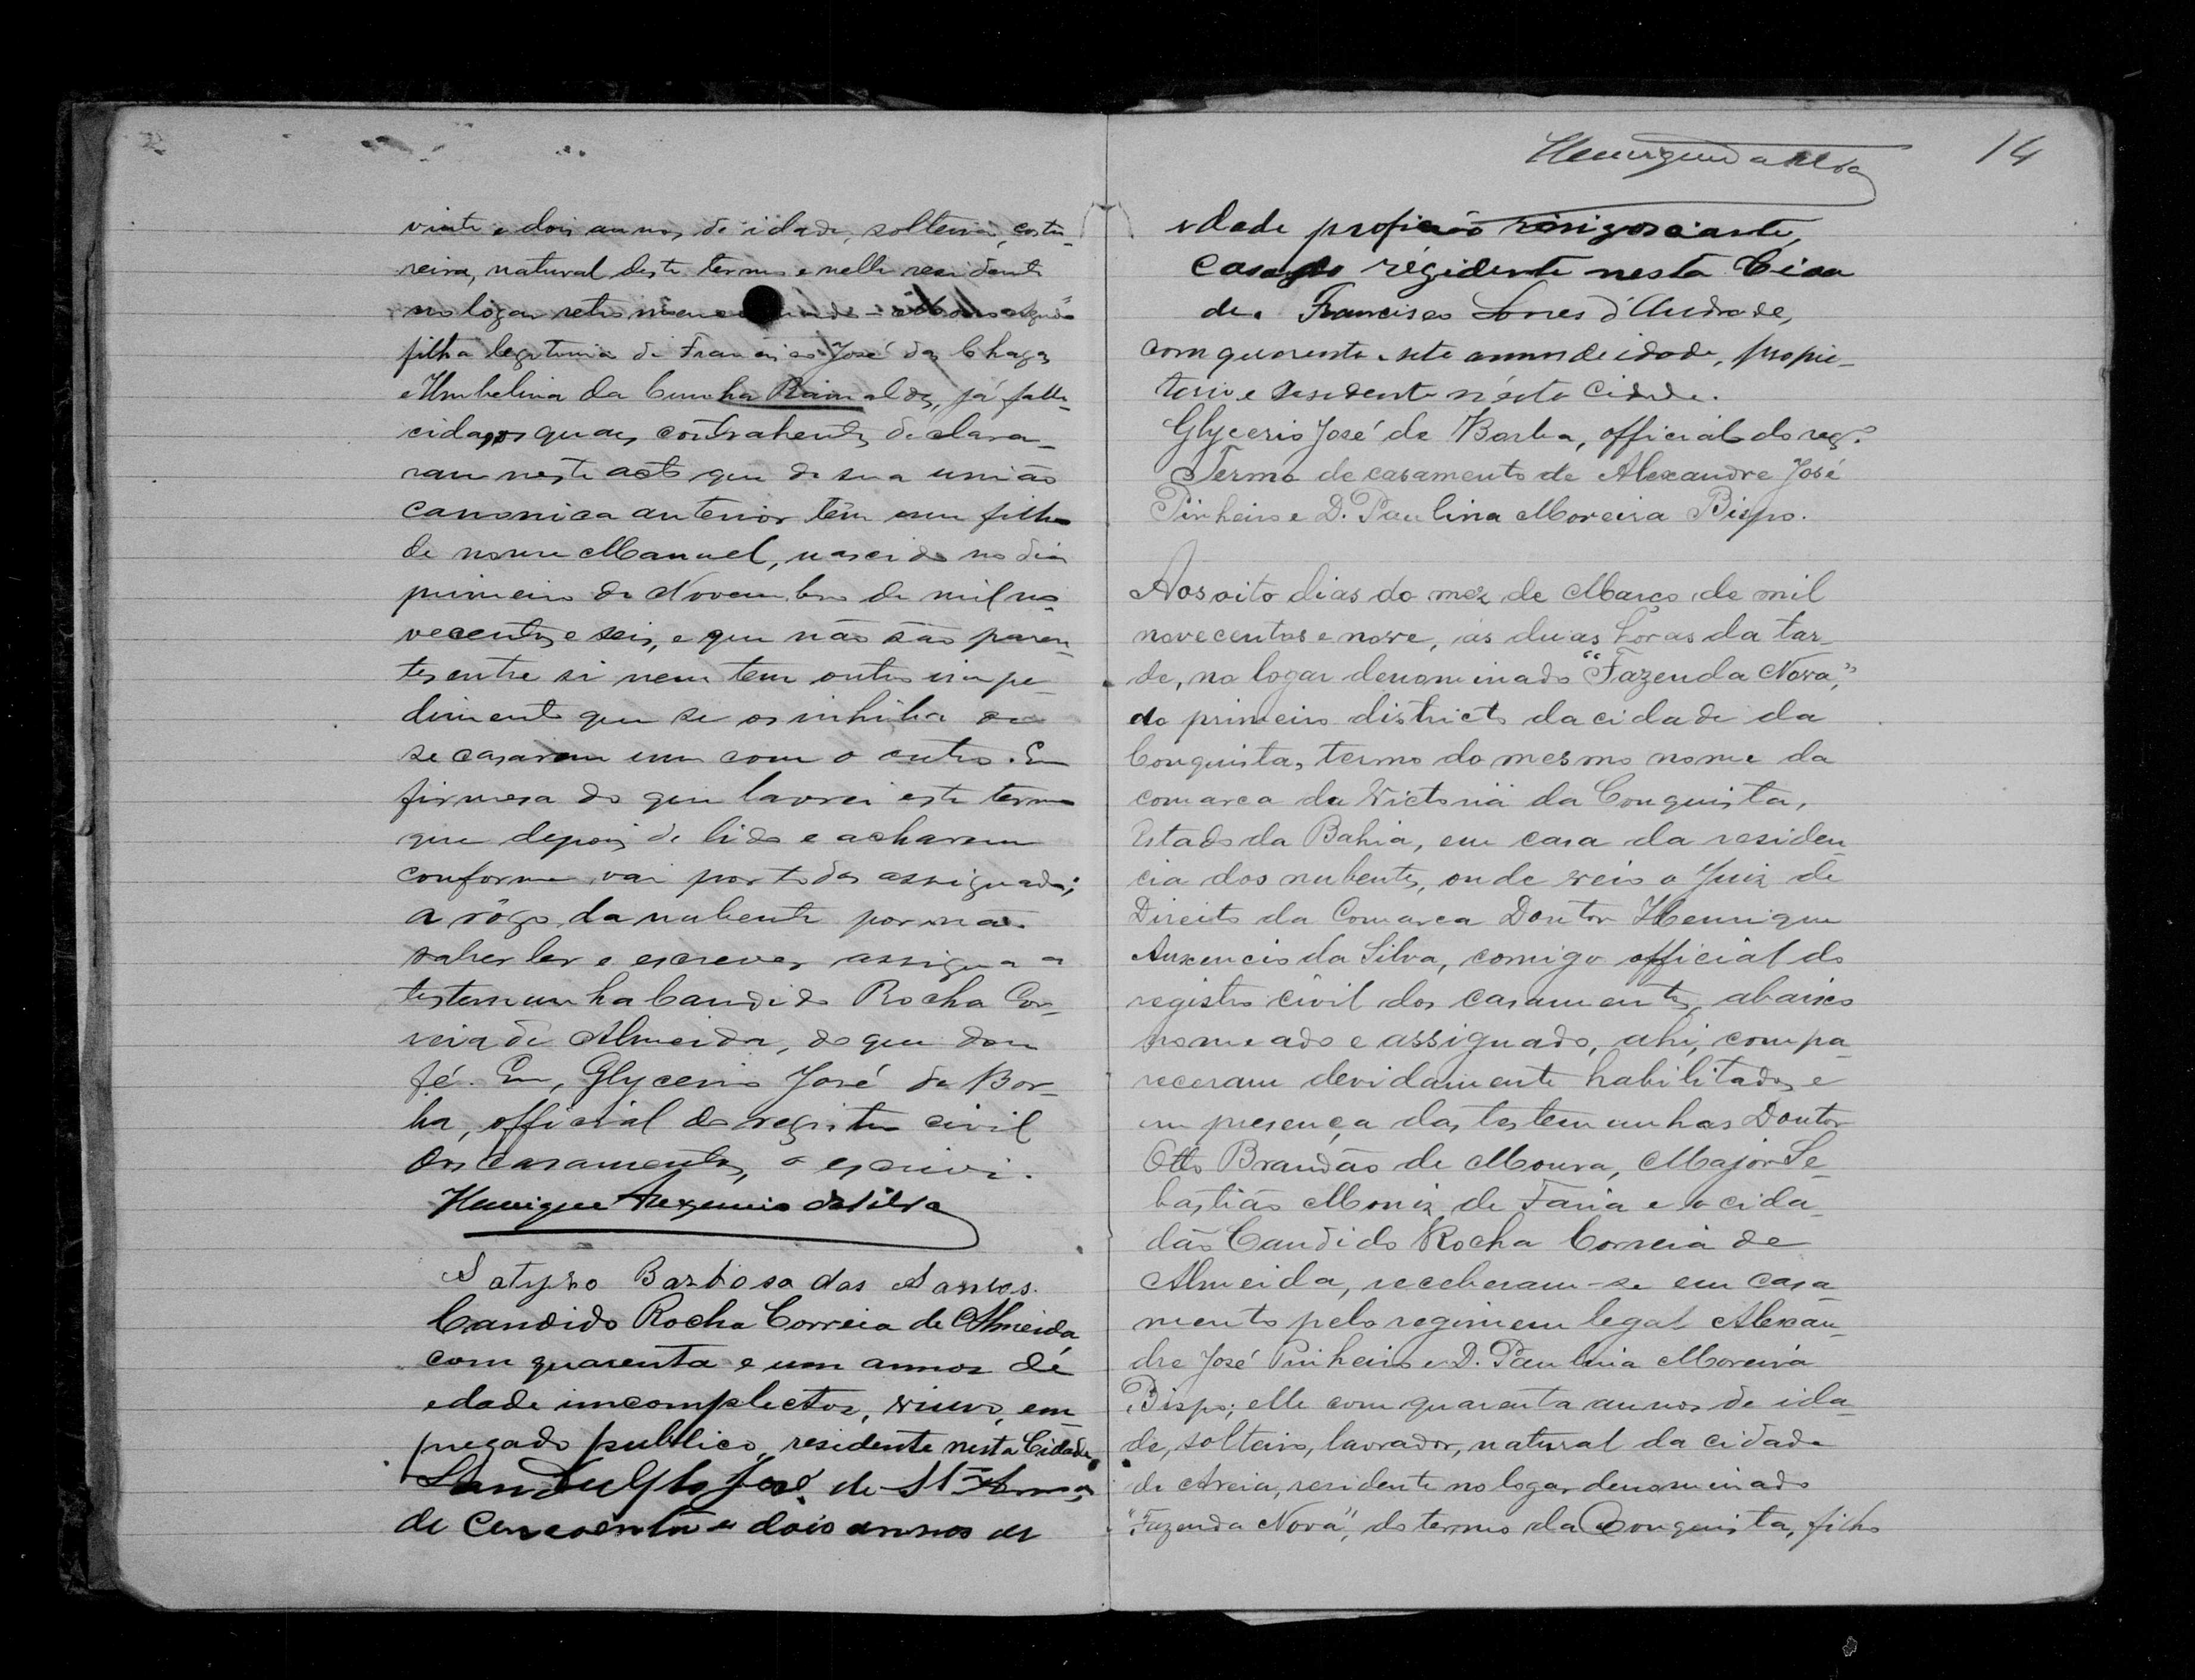 vinte e dois annos de idade, solteira, costu-
reira, natural deste termo e nelle residente
no logar retro
filha legitima de Francisco José das Chagas
e Umbelina da Cunha Ramalda, já falle-
cida, os quaes contrahentes declara-
ram neste acto que de sua união
canonica anterior têm um filho
de nome Manuel, nascido no dia
primeiro de Novembro de mil no-
vecentos e seis, e que não são paren-
tes entre si nem tem outro impe-
dimento que se os inhiba de
se casarem um com o outro. Em
firmesa do que lavrei este termo
que depois de lido e acharem
conforme vai por todos assignado;
a rôgo da nubente por não
saber ler e escrever assigna a
testemunha Candido Rocha Cor-
reia de Almeida, do que dou
fé. Eu, Glycerio José da Bor-
ba, official do registro civil
dos casamentos, o escrivi.
Henrique Auxencio da Silva
Satyro Barbosa dos Santos.
Candido Rocha Correia de Almeida
com quarenta e um annos de
edade imcomplectos, viuvo, em-
pregado publico, residente nesta Cidade
Landulpho José de Stª Anna,
de cencoenta e dois annos de
Henrique da Silva
14
edade profição
Casado régidente nesta Cida
de. Francisco Torres d'Andrade,
com quarenta e sete annos de idade, propie-
tario e residente n'ésta Cidade.
Glycerio José da Borba, official do reg.º
Termo de casamento de Alexandre José
Pinheiro e D. Paulina Moreira Bispo.
Aos oito dias do mez de Março de mil
novecentos e nove, ás duas horas da tar-
de, no logar denominado "Fazenda Nova,"
do primeiro districto da cidade da
Conquista, termo do mesmo nome da
comarca da Victoria da Conquista,
Estado da Bahia, em casa da residen-
cia dos nubentes, onde veio o Juiz de
Direito da Comarca Doutor Henrique
Auxencio da Silva, comigo official do
registro civil dos casamentos, abaixo
nomeado e assignado, ahi, compa-
receram devidamente habilitados e
em presença das testemunhas Doutor
Otto Brandão de Moura, Major Se-
bastião Moniz de Faria e o cida-
dão Candido Rocha Correia de
Almeida, receberam-se em casa-
mento pelo regimem legal Alexan-
dre José Pinheiro e D. Paulina Moreira
Bispo; elle com quarenta annos de ida-
de, solteiro, lavrador, natural da cidade
de Areia, residente no logar denominado
"Fazenda Nova", do termo da Conquista, filho